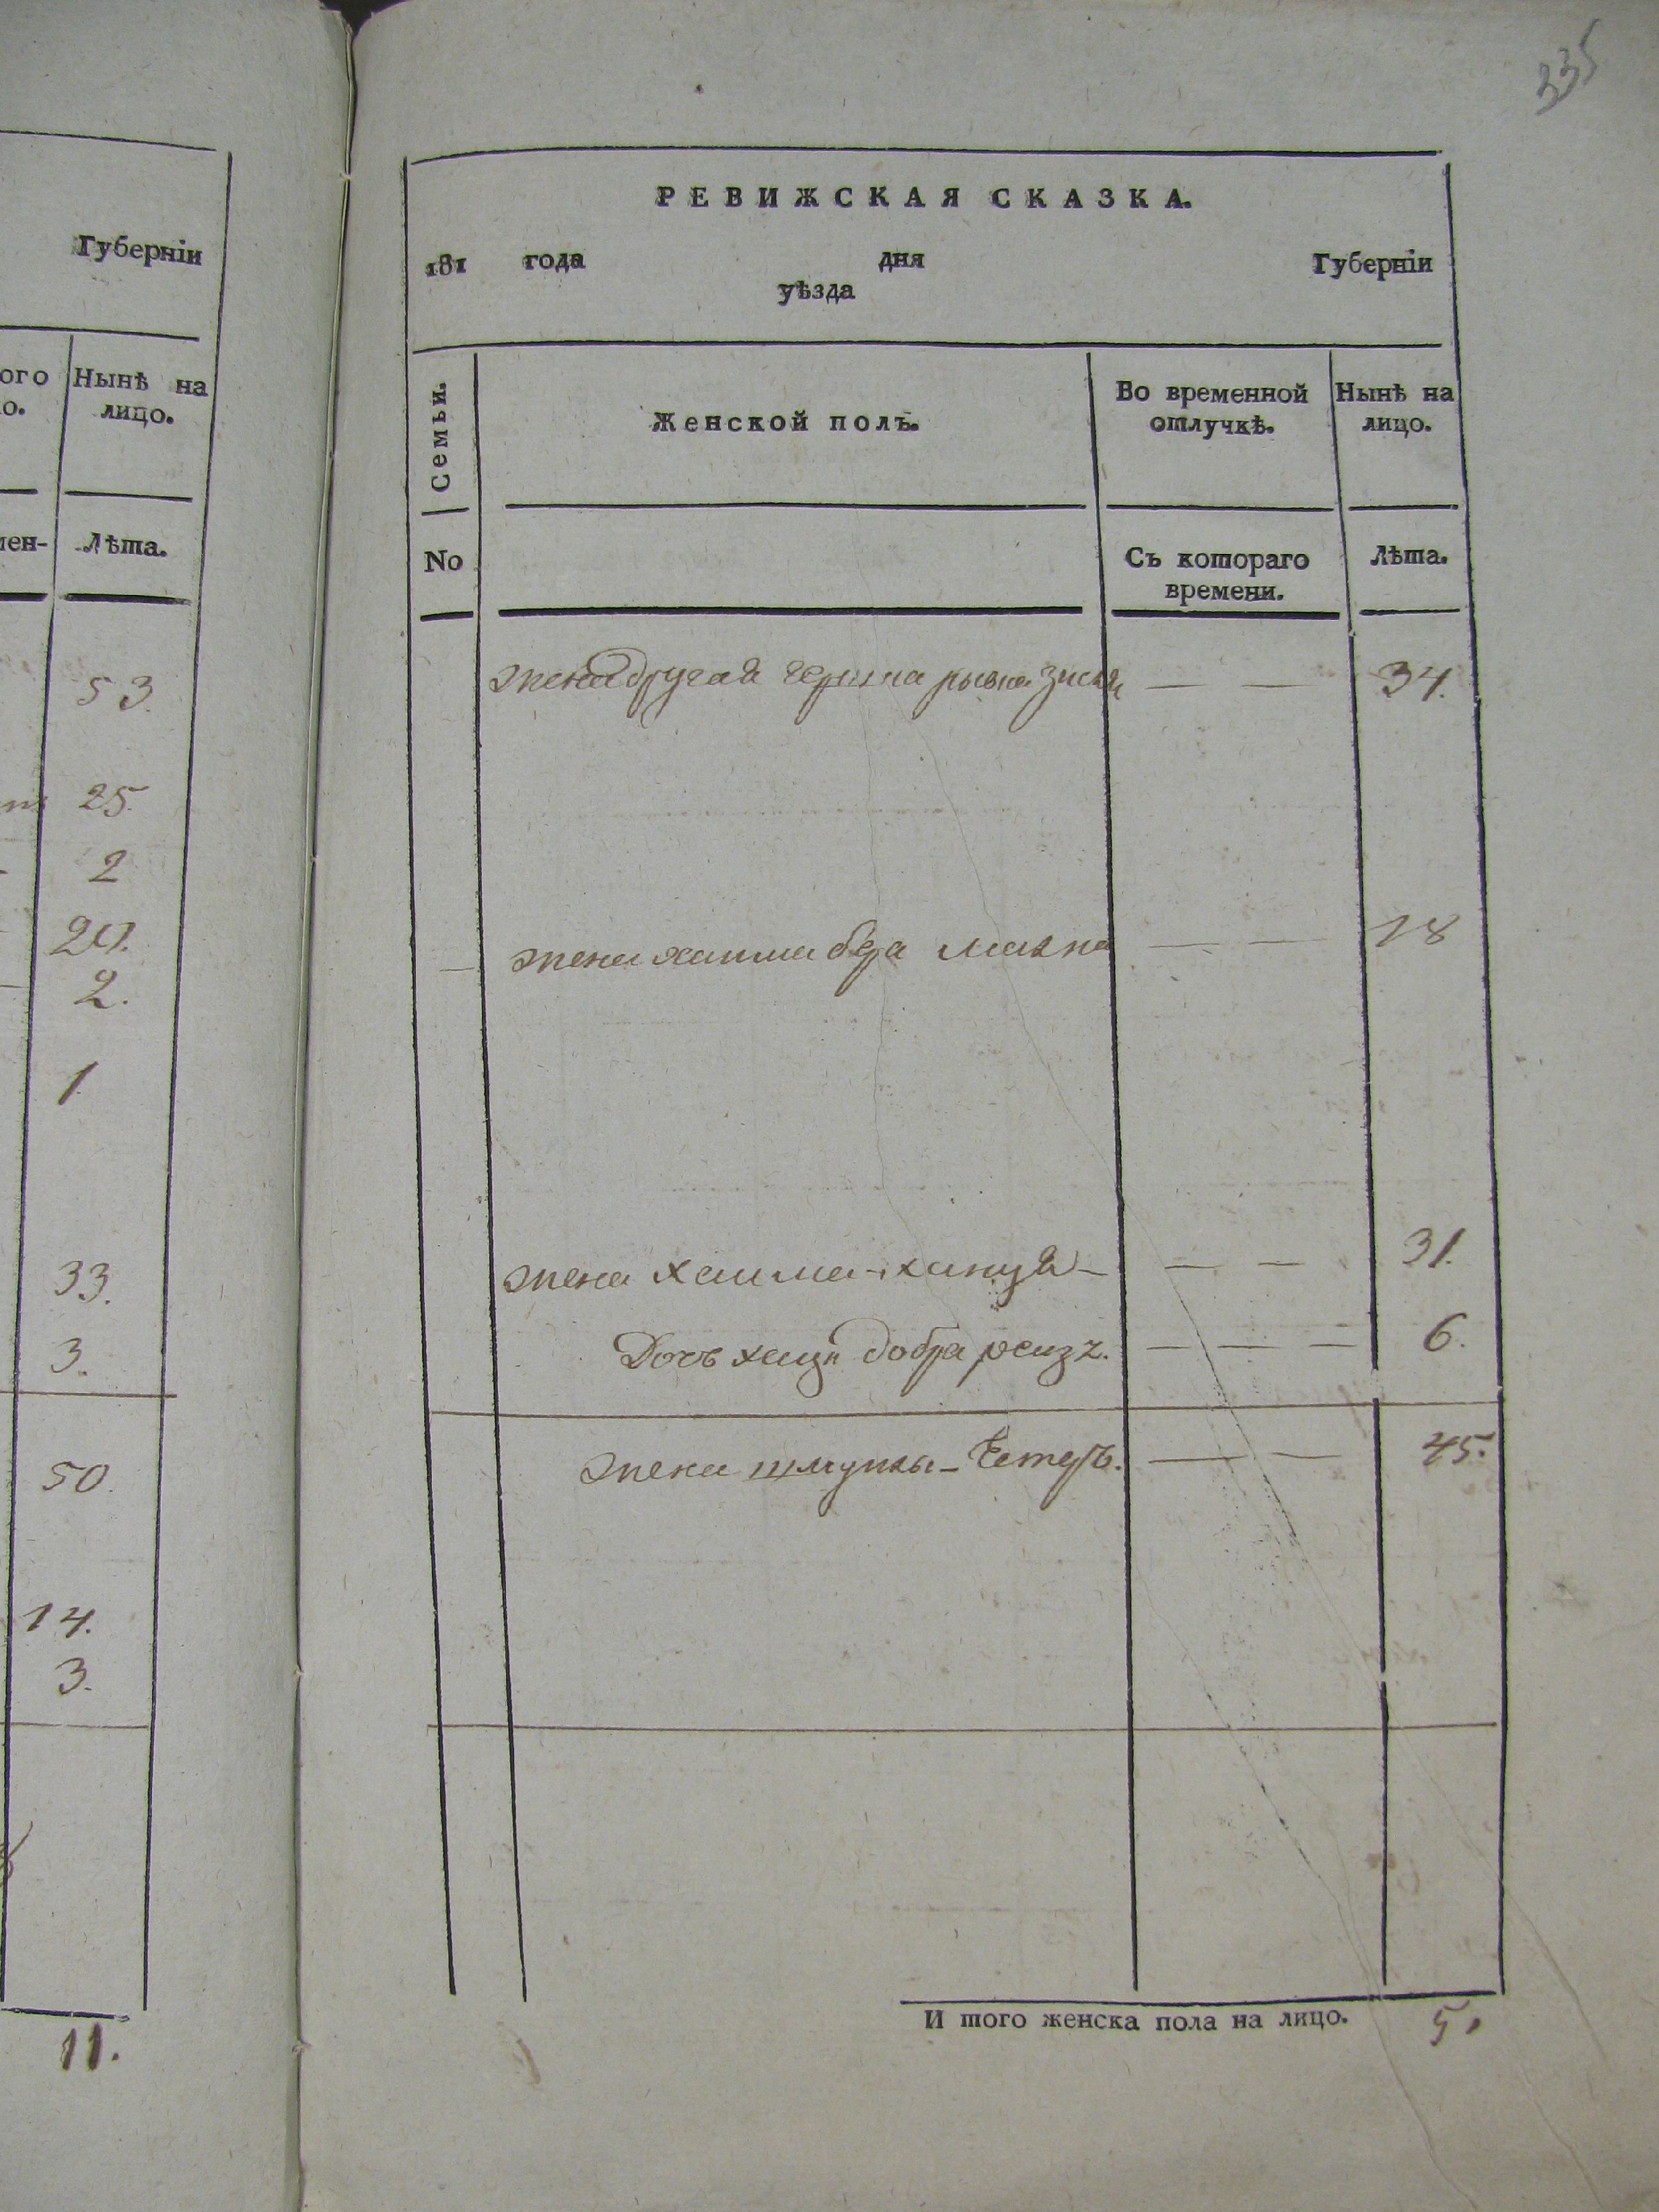 335
Губерніи
ого
Нынѣ на
о.
лицо.
мен-
Лѣта.
53.
25.
2
20.
2.
1
33.
3.
50.
14.
3.
11.
РЕВИЖСКАЯ СКАЗКА.
181 года дня Губерніи
уѣзда
Семьи.
Женской полъ.
Во временной
отлучкѣ.
Нынѣ на
лицо.
No
Съ котораго
времени.
Лѣта.
жена другая рывка — — 34.
— жена хаима — — 18
жена хаима — — — 31.
Дочь добра — — — 6.
жена шмуйлы – Естеръ. — — 45.
И того женска пола на лицо. 5.